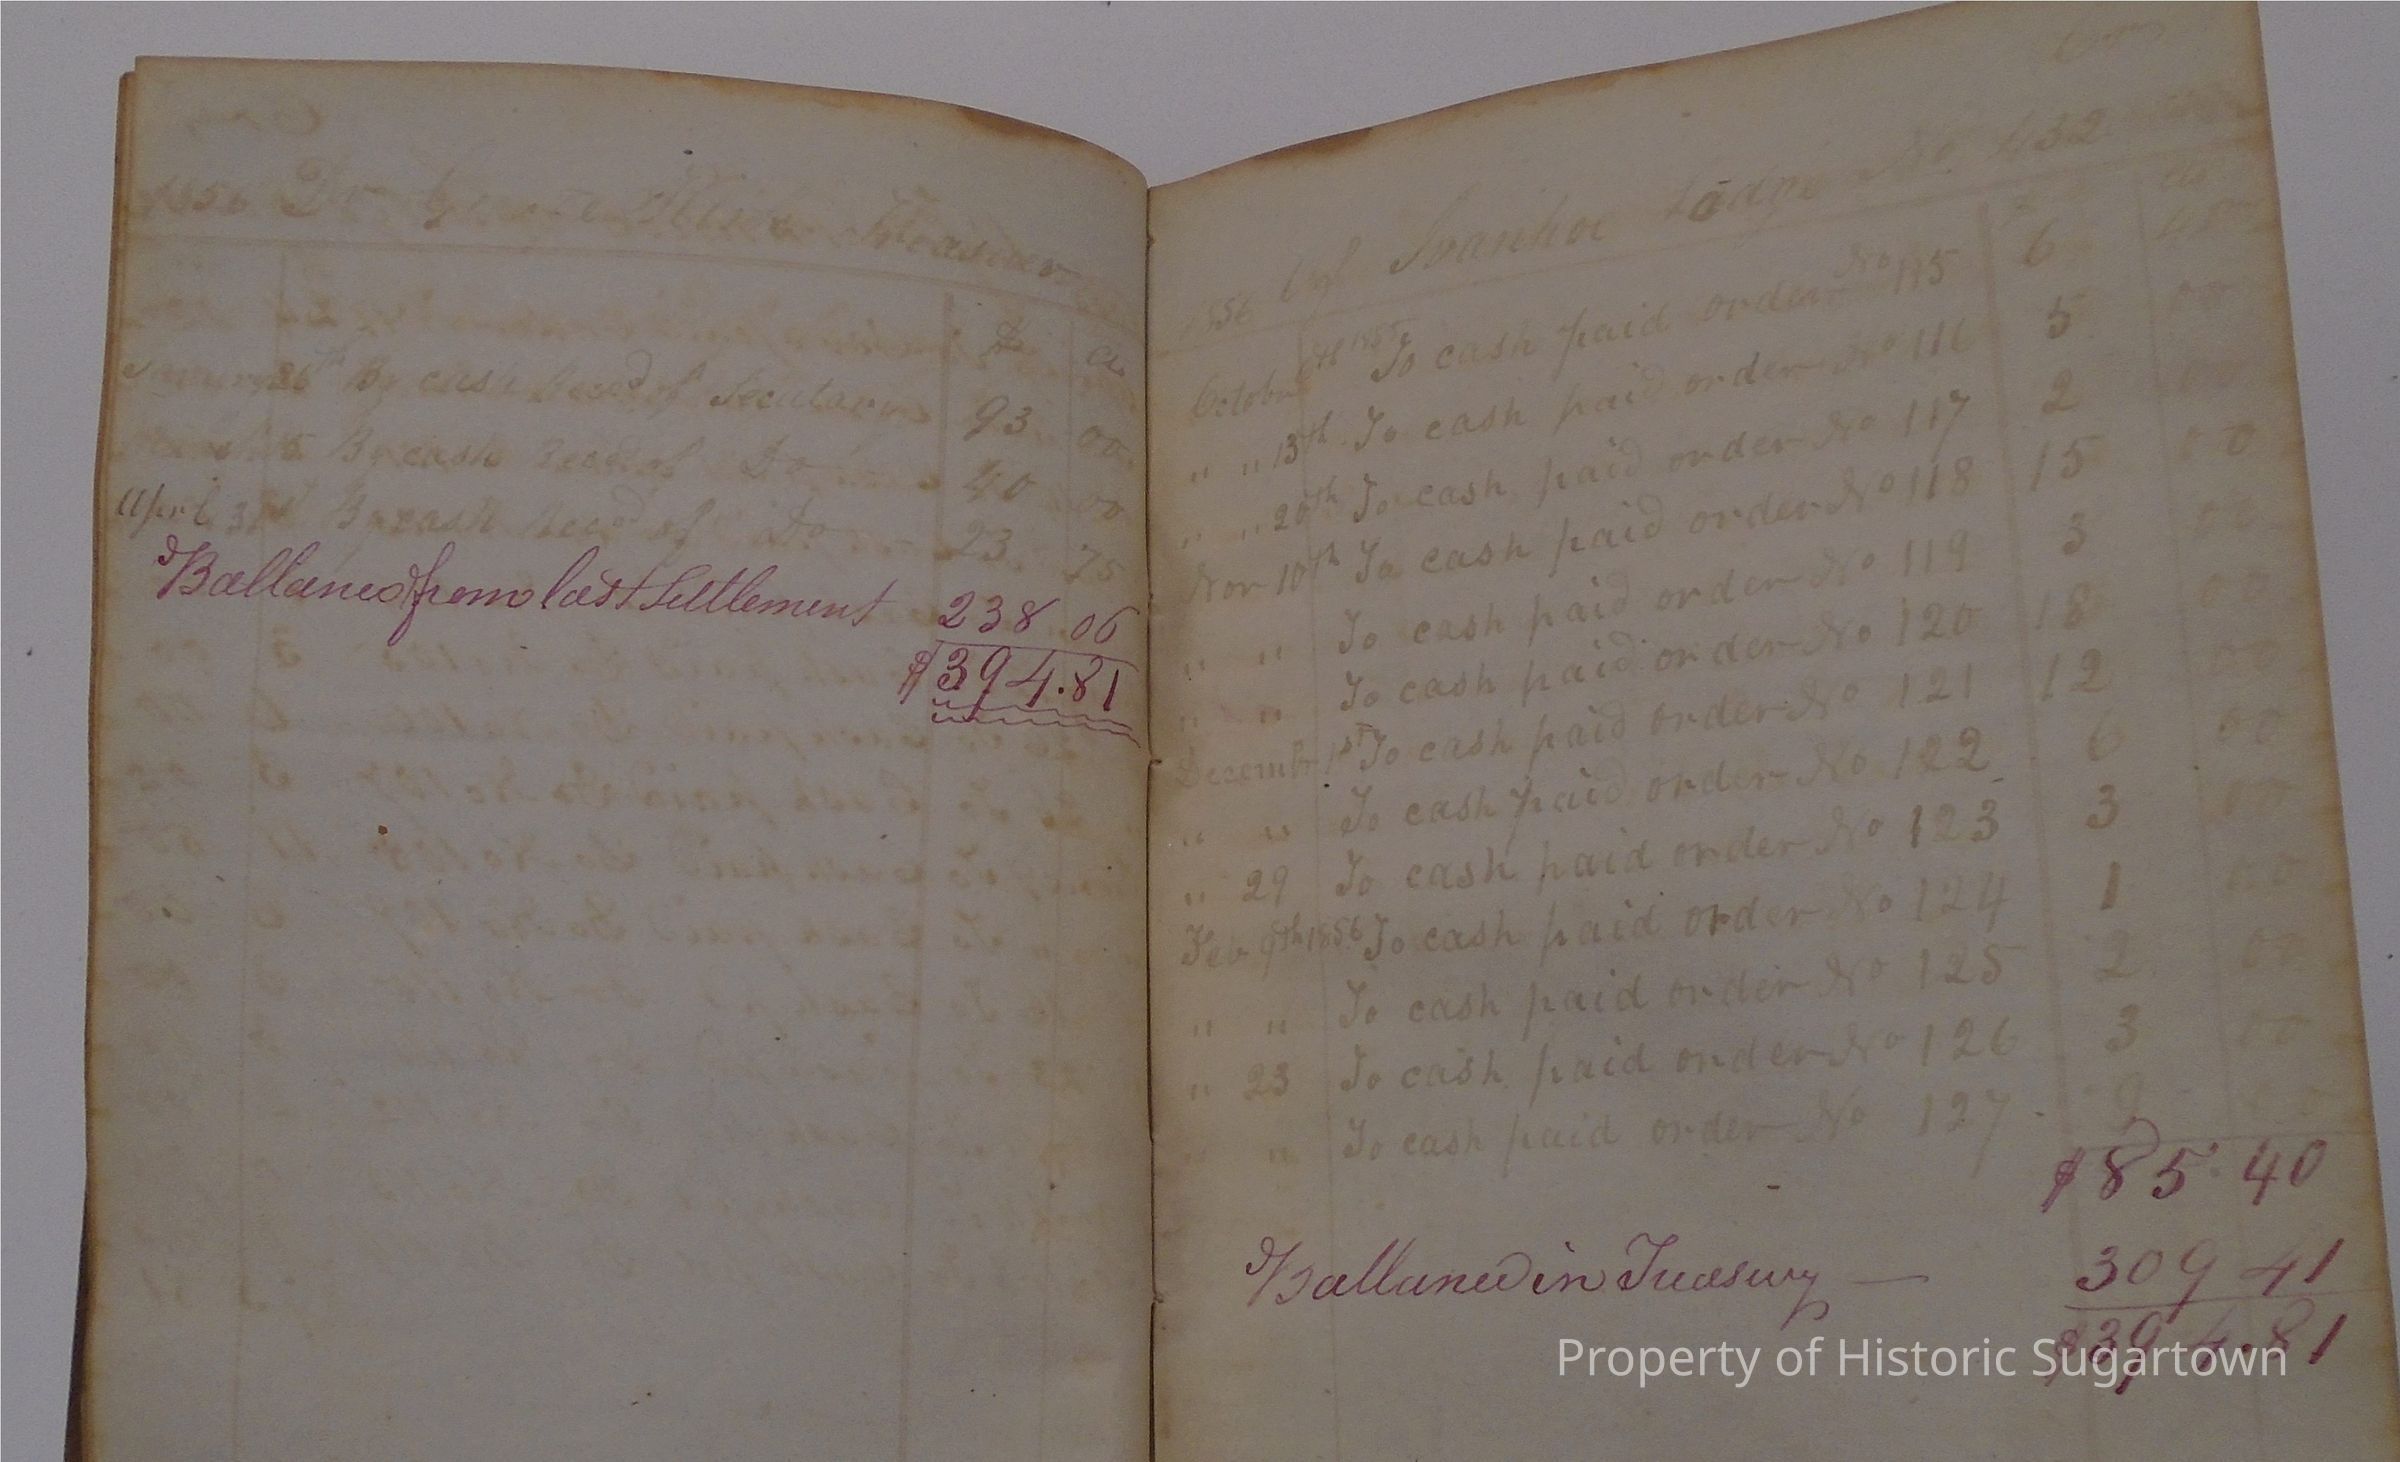 1856 Dr George Treasurer
$ cts
January 26th By cash Recd of Secutary 93 00
5 By cash Recd of Do 40 00
April 31st By cash Recd of Do 23 75
Ballance from last Settlement 238 06
$394.81
1856 of Ivanhoe Lodge No 432
October 6th 1855 To cash paid order No 115 6 40
" " 13th To cash paid order No 116 5 00
" " 20th To cash paid order No 117 2 00
Nov 10th To cash paid order No 118 15 00
" " To cash paid order No 119 3 00
" " To cash paid order No 120 18 00
Decembr 1st To cash paid order No 121 12 00
" " To cash paid order No 122 6 00
" 29 To cash paid order No 123 3 00
Feb 9th 1856 To cash paid order No 124 1 00
" " To cash paid order No 125 2 00
" 23 To cash paid order No 126 3 00
" " To cash paid order No 127 9 00
$85.40
Ballance in Treasury — 309 41
$394.81
Property of Historic Sugartown